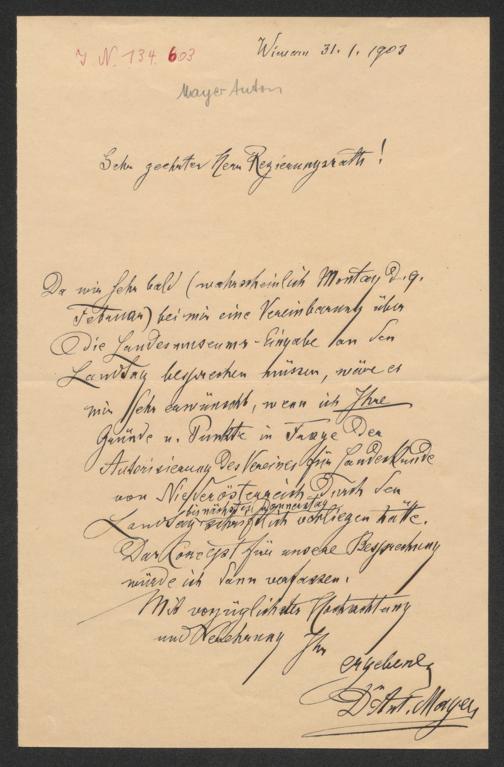 J. N. 134.603
Wien 31. 1. 1903
Mayer Anton
Sehr geehrter Herr Regierungsrath!
Da wir sehr bald (wahrscheinlich Montag d. 9.
Februar) bei mir eine Vereinbarung über
die Landesmuseums-Eingabe an den
Landtag besprechen müssen, wäre es
mir sehr erwünscht, wenn ich Ihre
Gründe u. Punkte in Frage der
Autorisierung des Vereines für Landeskunde
von Niederösterreich durch den
bis nächsten Donnerstag
Landtag schriftlich vorliegen hätte.
Das Concept für unsere Besprechung
würde ich dann verfassen.
Mit vorzüglichster Hochachtung
und Verehrung Ihr
ergebener
Dr Ant. Mayer